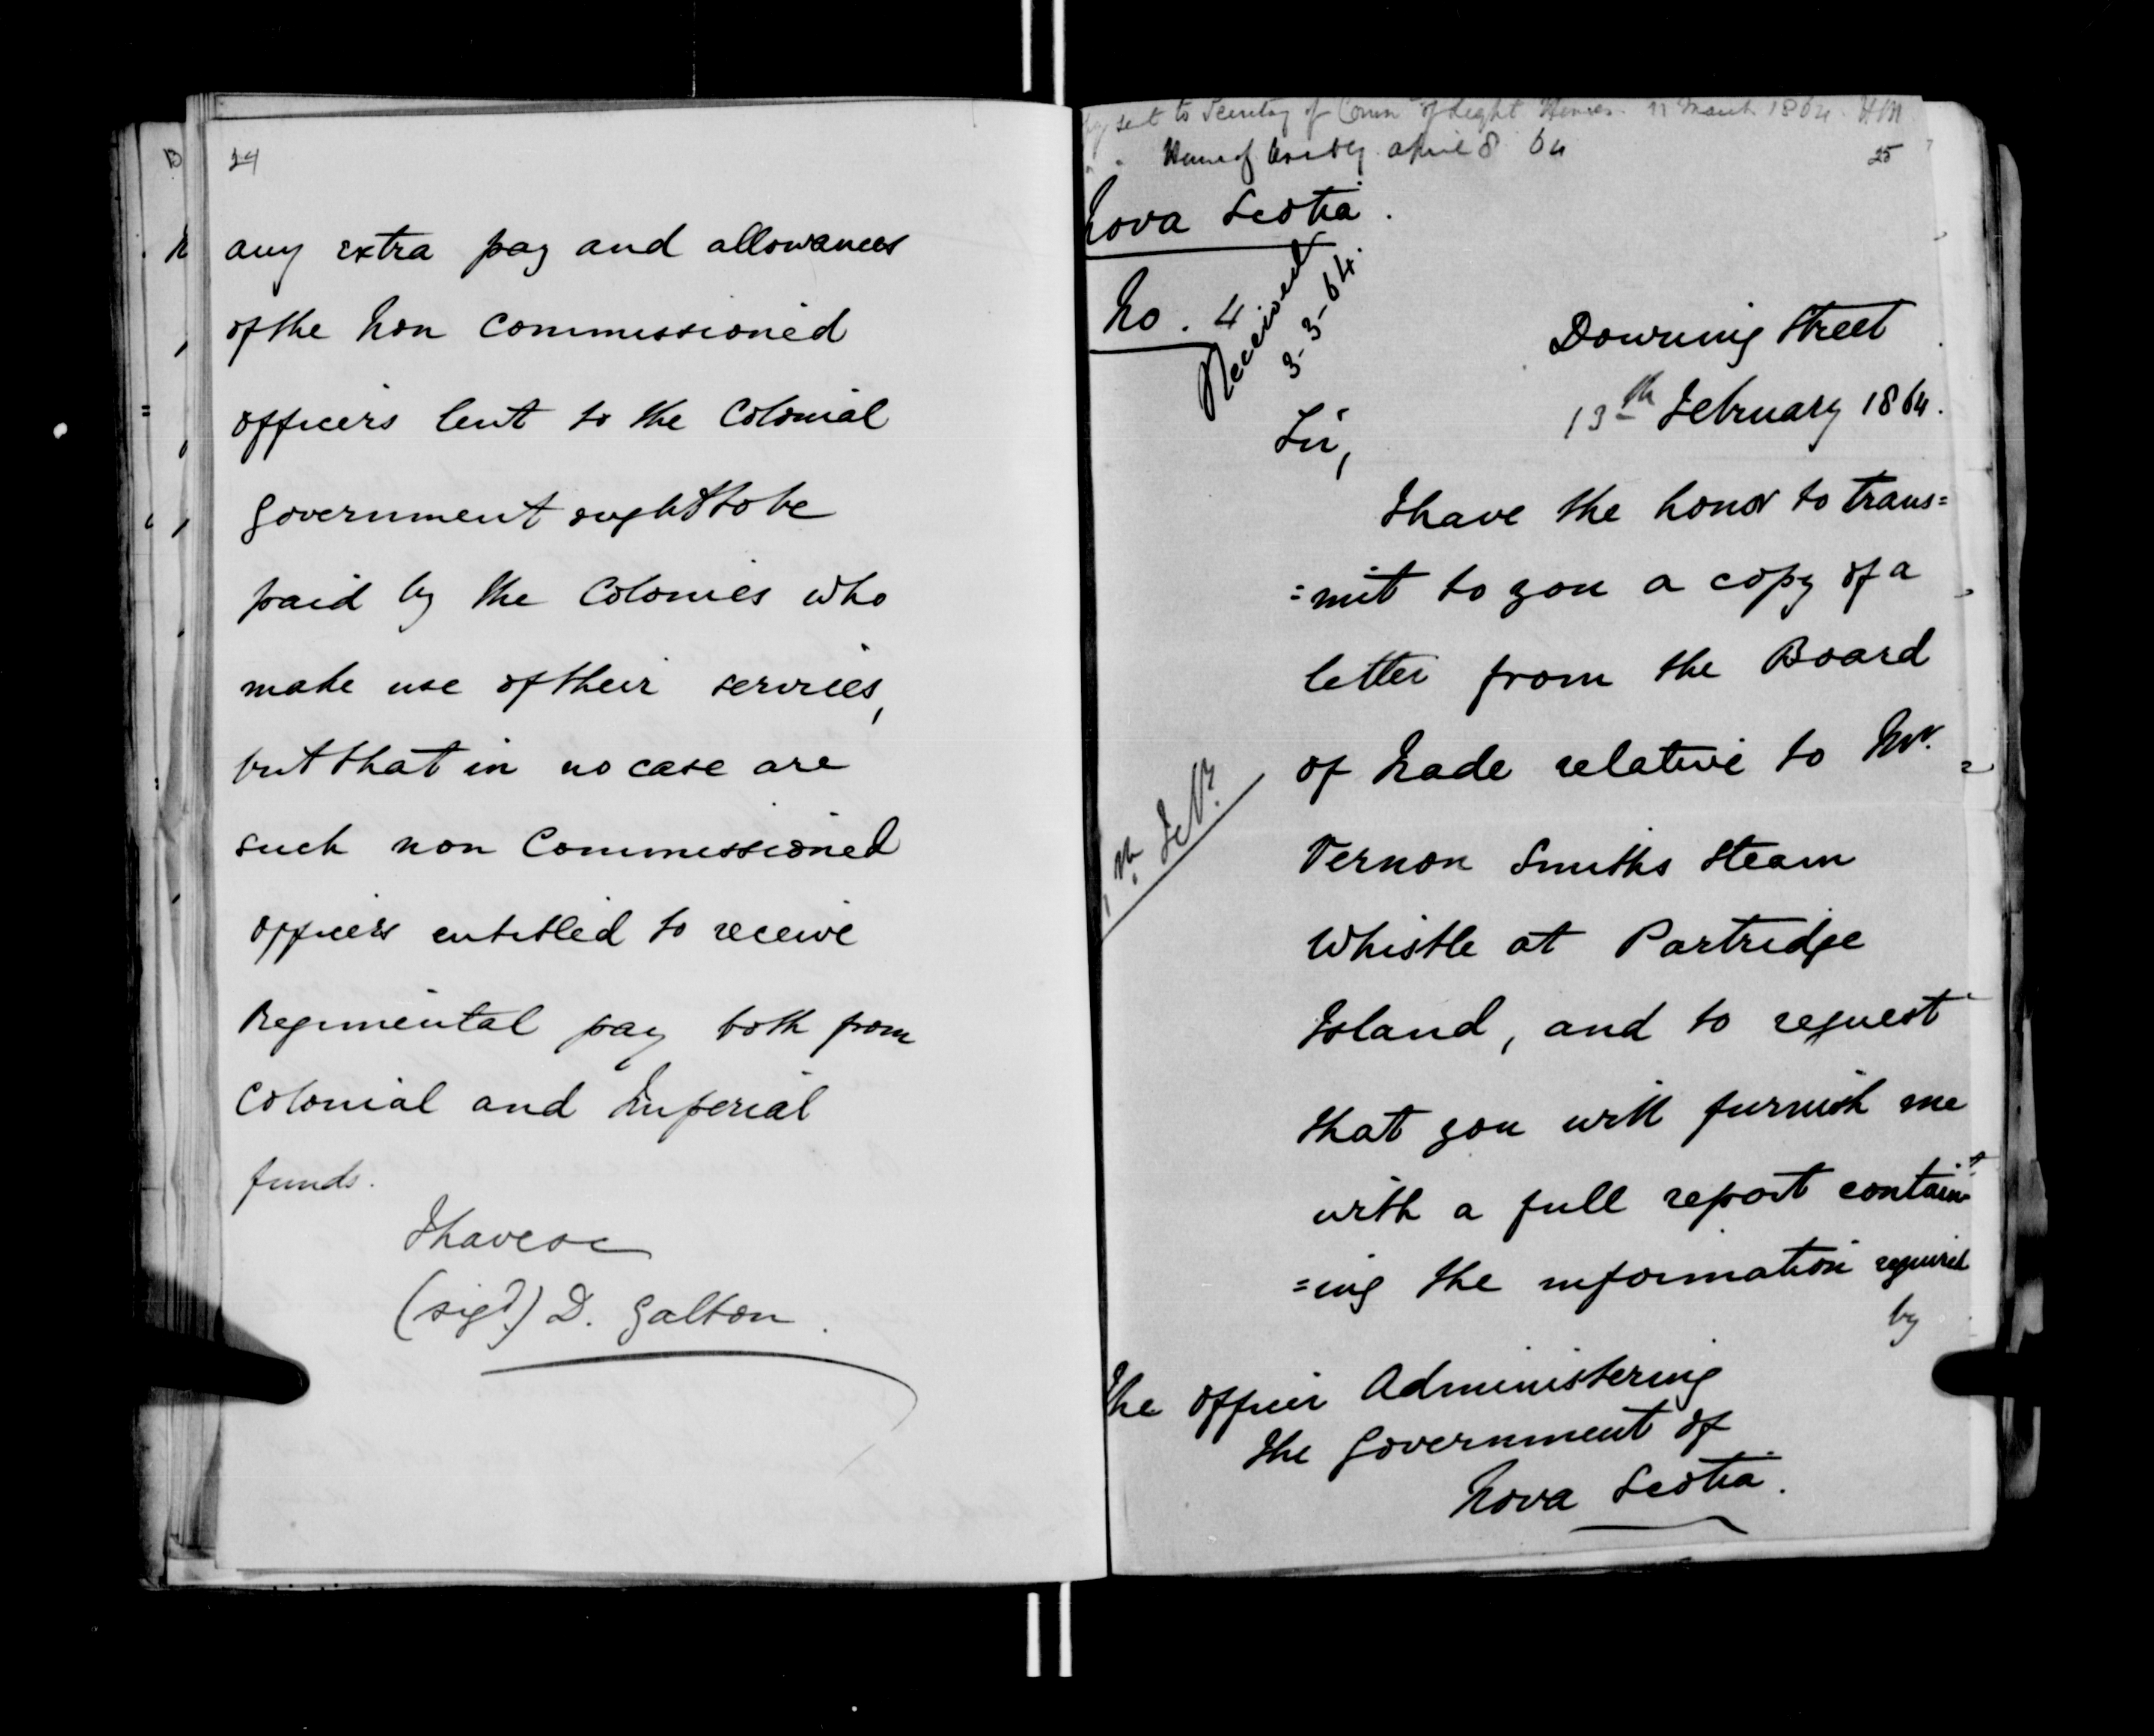 24
any extra pay and allowances
of the Non Commissioned
officers lent to the Colonial
Government ought to be
paid by the Colonies who
make use of their services,
but that in no case are
such non Commissioned
officers entitled to receive
Regimental pay both from
Colonial and Imperial
funds.
I have &c
(sigd) D. Galton.
sent to Secretary of Commn of Light Houses. 11 March 1864. HM
House of Assbly. April 8 64
25
Nova Scotia.
No. 4
Received
3-3-64.
Downing Street
13th February 1864.
Sir,
I have the honor to trans=
=mit to you a copy of a
letter from the Board
of Trade relative to Mr.
Vernon Smiths Steam
Whistle at Partridge
Island, and to request
that you will furnish me
with a full report contain=
=ing the information required
by
1 th. Feby.
The Officer Administering
the Government of
Nova Scotia.